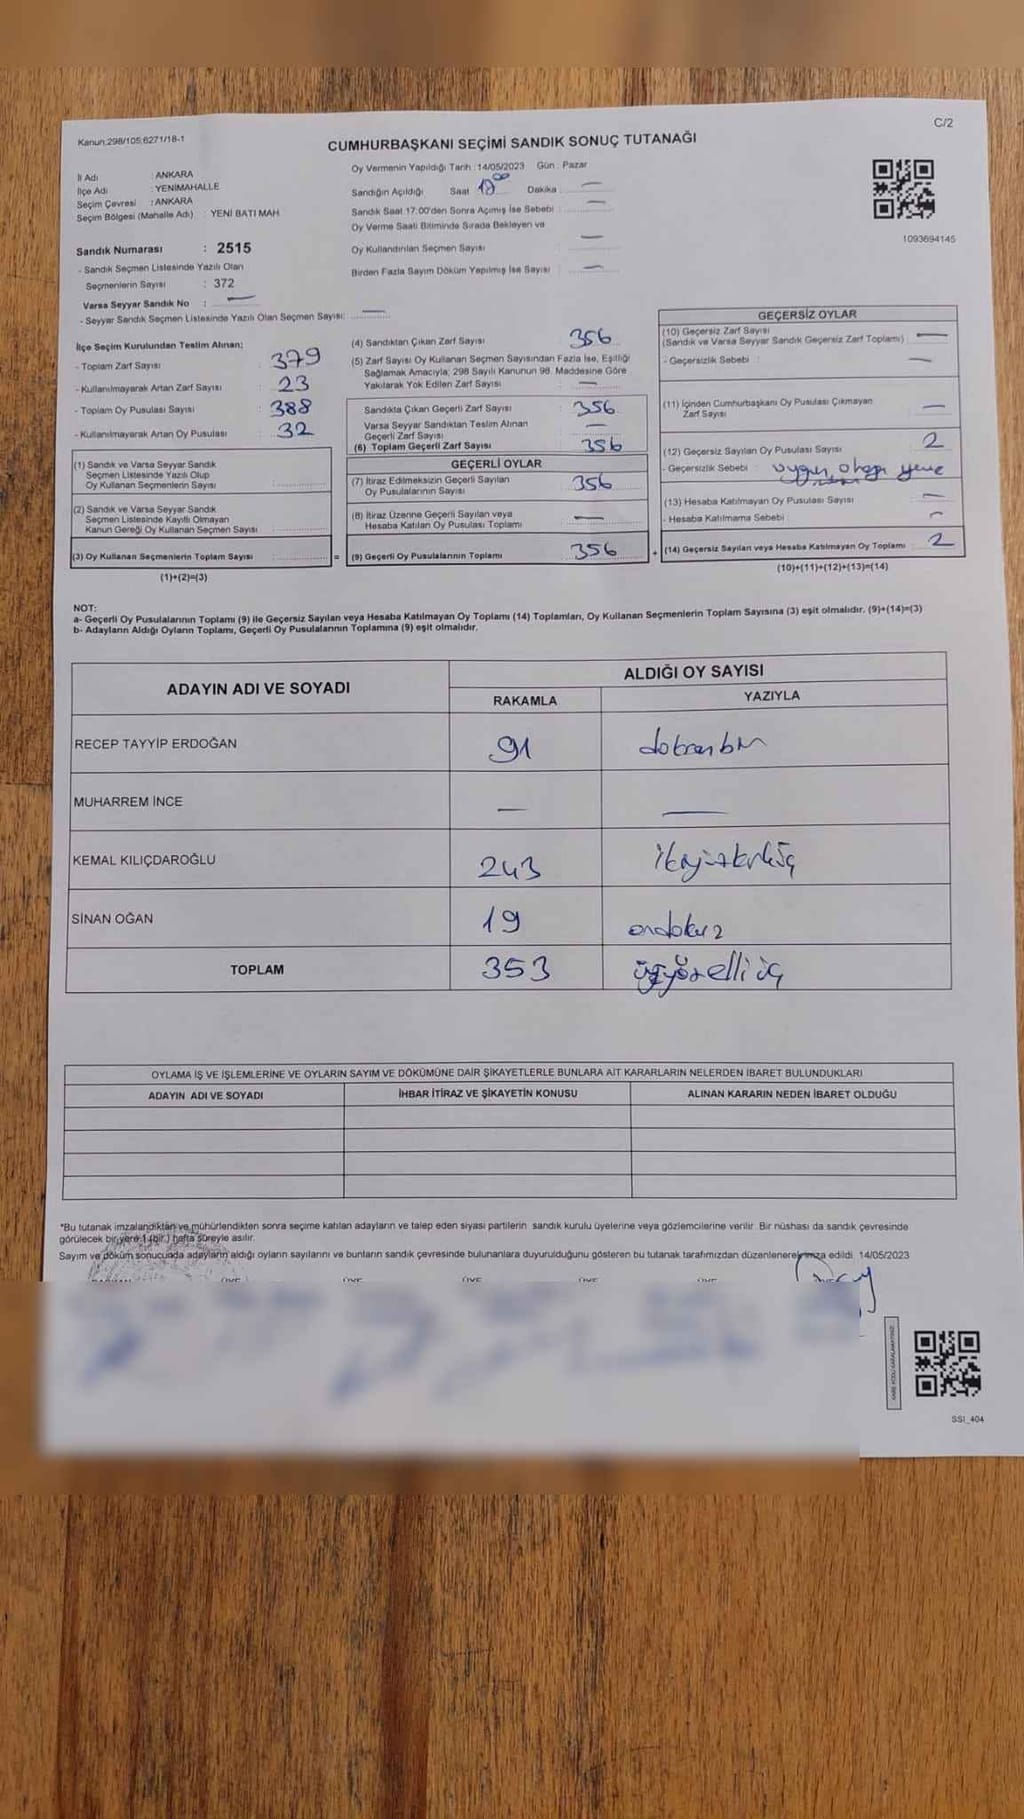 C/2
Kanun:298/105;6271/18-1
CUMHURBAŞKANI SEÇİMİ SANDIK SONUÇ TUTANAĞI
İl Adı : ANKARA
İlçe Adı : YENİMAHALLE
Seçim Çevresi : ANKARA
Seçim Bölgesi (Mahalle Adı) : YENİ BATI MAH
Sandık Numarası : 2515
- Sandık Seçmen Listesinde Yazılı Olan
Seçmenlerin Sayısı : 372
Varsa Seyyar Sandık No : —
- Seyyar Sandık Seçmen Listesinde Yazılı Olan Seçmen Sayısı: —
Oy Vermenin Yapıldığı Tarih :14/05/2023 Gün : Pazar
Sandığın Açıldığı Saat Dakika : —
Sandık Saat 17:00'den Sonra Açımış İse Sebebi : —
Oy Verme Saati Bitiminde Sırada Bekleyen ve
Oy Kullandırılan Seçmen Sayısı —
Birden Fazla Sayım Döküm Yapılmış İse Sayısı : —
1093694145
İlçe Seçim Kurulundan Teslim Alınan;
- Toplam Zarf Sayısı : 379
- Kullanılmayarak Artan Zarf Sayısı : 23
- Toplam Oy Pusulası Sayısı : 388
- Kullanılmayarak Artan Oy Pusulası : 32
(1) Sandık ve Varsa Seyyar Sandık
Seçmen Listesinde Yazılı Olup
Oy Kullanan Seçmenlerin Sayısı
(2) Sandık ve Varsa Seyyar Sandık
Seçmen Listesinde Kayıtlı Olmayan
Kanun Gereği Oy Kullanan Seçmen Sayısı
(3) Oy Kullanan Seçmenlerin Toplam Sayısı =
(1)+(2)=(3)
(4) Sandıktan Çıkan Zarf Sayısı : 356
(5) Zarf Sayısı Oy Kullanan Seçmen Sayısından Fazla İse, Eşitliği
Sağlamak Amacıyla; 298 Sayılı Kanunun 98. Maddesine Göre
Yakılarak Yok Edilen Zarf Sayısı : —
Sandıkta Çıkan Geçerli Zarf Sayısı : 356
Varsa Seyyar Sandıktan Teslim Alınan
Geçerli Zarf Sayısı : —
(6) Toplam Geçerli Zarf Sayısı : 356
GEÇERLİ OYLAR
(7) İtiraz Edilmeksizin Geçerli Sayılan
Oy Pusulalarının Sayısı : 356
(8) İtiraz Üzerine Geçerli Sayılan veya
Hesaba Katılan Oy Pusulası Toplamı : —
(9) Geçerli Oy Pusulalarının Toplamı : 356 +
GEÇERSİZ OYLAR
(10) Geçersiz Zarf Sayısı
(Sandık ve Varsa Seyyar Sandık Geçersiz Zarf Toplamı) : —
- Geçersizlik Sebebi : —
(11) İçinden Cumhurbaşkanı Oy Pusulası Çıkmayan
Zarf Sayısı : —
(12) Geçersiz Sayılan Oy Pusulası Sayısı : 2
- Geçersizlik Sebebi :
(13) Hesaba Katılmayan Oy Pusulası Sayısı : —
- Hesaba Katılmama Sebebi : —
(14) Geçersiz Sayılan veya Hesaba Katılmayan Oy Toplamı : 2
(10)+(11)+(12)+(13)=(14)
NOT:
a- Geçerli Oy Pusulalarının Toplamı (9) ile Geçersiz Sayılan veya Hesaba Katılmayan Oy Toplamı (14) Toplamları, Oy Kullanan Seçmenlerin Toplam Sayısına (3) eşit olmalıdır. (9)+(14)=(3)
b- Adayların Aldığı Oyların Toplamı, Geçerli Oy Pusulalarının Toplamına (9) eşit olmalıdır.
ADAYIN ADI VE SOYADI ALDIĞI OY SAYISI
RAKAMLA YAZIYLA
RECEP TAYYİP ERDOĞAN 91 doksanbir
MUHARREM İNCE — —
KEMAL KILIÇDAROĞLU 243 ikiyüzkırküç
SİNAN OĞAN 19 ondokuz
TOPLAM 353 üçyüzelliüç
OYLAMA İŞ VE İŞLEMLERİNE VE OYLARIN SAYIM VE DÖKÜMÜNE DAİR ŞİKAYETLERLE BUNLARA AİT KARARLARIN NELERDEN İBARET BULUNDUKLARI
ADAYIN ADI VE SOYADI İHBAR İTİRAZ VE ŞİKAYETİN KONUSU ALINAN KARARIN NEDEN İBARET OLDUĞU
*Bu tutanak imzalandıktan ve mühürlendikten sonra seçime katılan adayların ve talep eden siyasi partilerin sandık kurulu üyelerine veya gözlemcilerine verilir. Bir nüshası da sandık çevresinde
görülecek bir yere 1 (bir) hafta süreyle asılır.
Sayım ve döküm sonucunda adayların aldığı oyların sayılarını ve bunların sandık çevresinde bulunanlara duyurulduğunu gösteren bu tutanak tarafımızdan düzenlenerek imza edildi. 14/05/2023
SSI_404